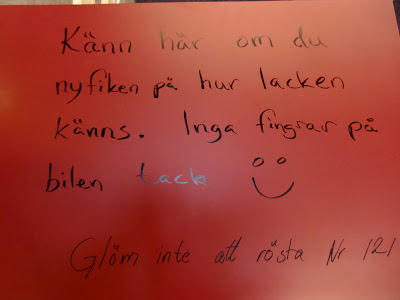 Känn här om du
nyfiken på hur lacken
känns. Inga fingrar på
bilen tack
Glöm inte att rösta Nr 121